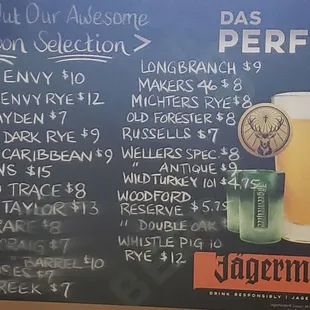 Out Our Awesome
on Selection >
ENVY $10
ENVY RYE $12
AYDEN $7
DARK RYE $9
CARIBBEAN $9
WS $15
O TRACE $8
TAYLOR $13
RARE $8
CRAIG $7
BARREL $10
SES $7
REEK $7
LONGBRANCH $9
MAKERS 46 $8
MICHTERS RYE $8
OLD FORESTER $8
RUSSELLS $7
WELLERS SPEC. $8
" ANTIQUE $9
WILD TURKEY 101 $4.75
WOODFORD
RESERVE $5.75
" DOUBLE OAK
WHISTLE PIG 10
RYE $12
DAS
PERF
Jägerm
DRINK RESPONSIBLY